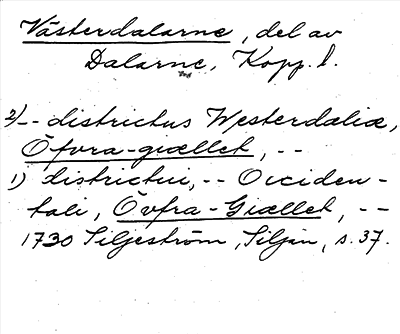 Västerdalarne, del av
Dalarne, Kopp. l.
2) -- districtus Westerdaliæ,
Öfvra-giællet, --
1) districtui, -- Occiden-
tali, Övfra-Giællet, --
1730 Siljeström, Siljan, s. 37.